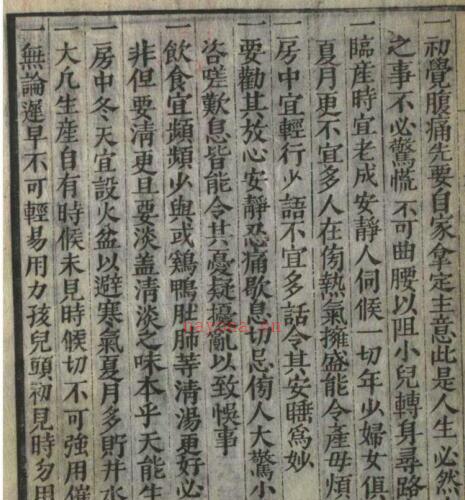 一初覺腹痛先要自家拿定主意此是人生必然
之事不必驚慌不可曲腰以阻小兒轉身尋路
一臨産時宜老成安靜人伺候一切年少婦女俱
夏月更不宜多人在傍熱氣擁盛能令産母煩
一房中宜輕行少語不宜多話令其安睡爲妙
一要勸其放心安靜忍痛歇息切忌傍人大驚小
咨嗟歎息皆能令其憂疑擾亂以致悞事
一飲食宜頻頻少與或鷄鴨肚肺等清湯更好必
非但要清更且要淡盖清淡之味本乎天能生
一房中冬天宜設火盆以避寒氣夏月多貯井水
一大凡生産自有時候未見時候切不可強用催
一無論遲早不可輕易用力孩兒頭初見時勿用